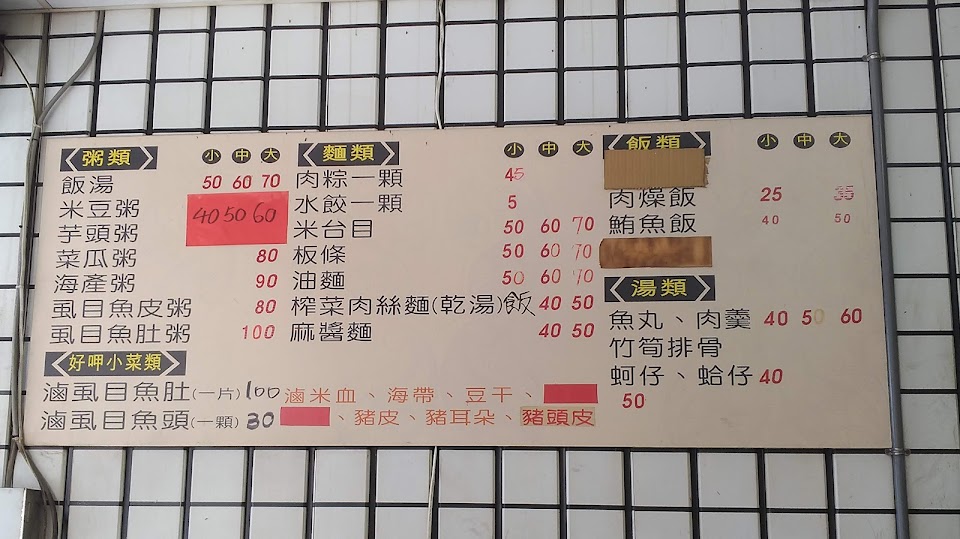 粥類 小 中 大
飯湯 50 60 70
米豆粥 40 50 60
芋頭粥
菜瓜粥 80
海產粥 90
虱目魚皮粥 80
虱目魚肚粥 100
好呷小菜類
滷虱目魚肚(一片)100 滷米血、海帶、豆干、
滷虱目魚頭(一顆)30 、豬皮、豬耳朵、豬頭皮
麵類 小 中 大
肉粽一顆 45
水餃一顆 5
米台目 50 60 70
板條 50 60 70
油麵 50 60 70
榨菜肉絲麵(乾湯)飯 40 50
麻醬麵 40 50
飯類 小 中 大
肉燥飯 25 35
鮪魚飯 40 50
湯類
魚丸、肉羹 40 50 60
竹筍排骨
蚵仔、蛤仔 40
50